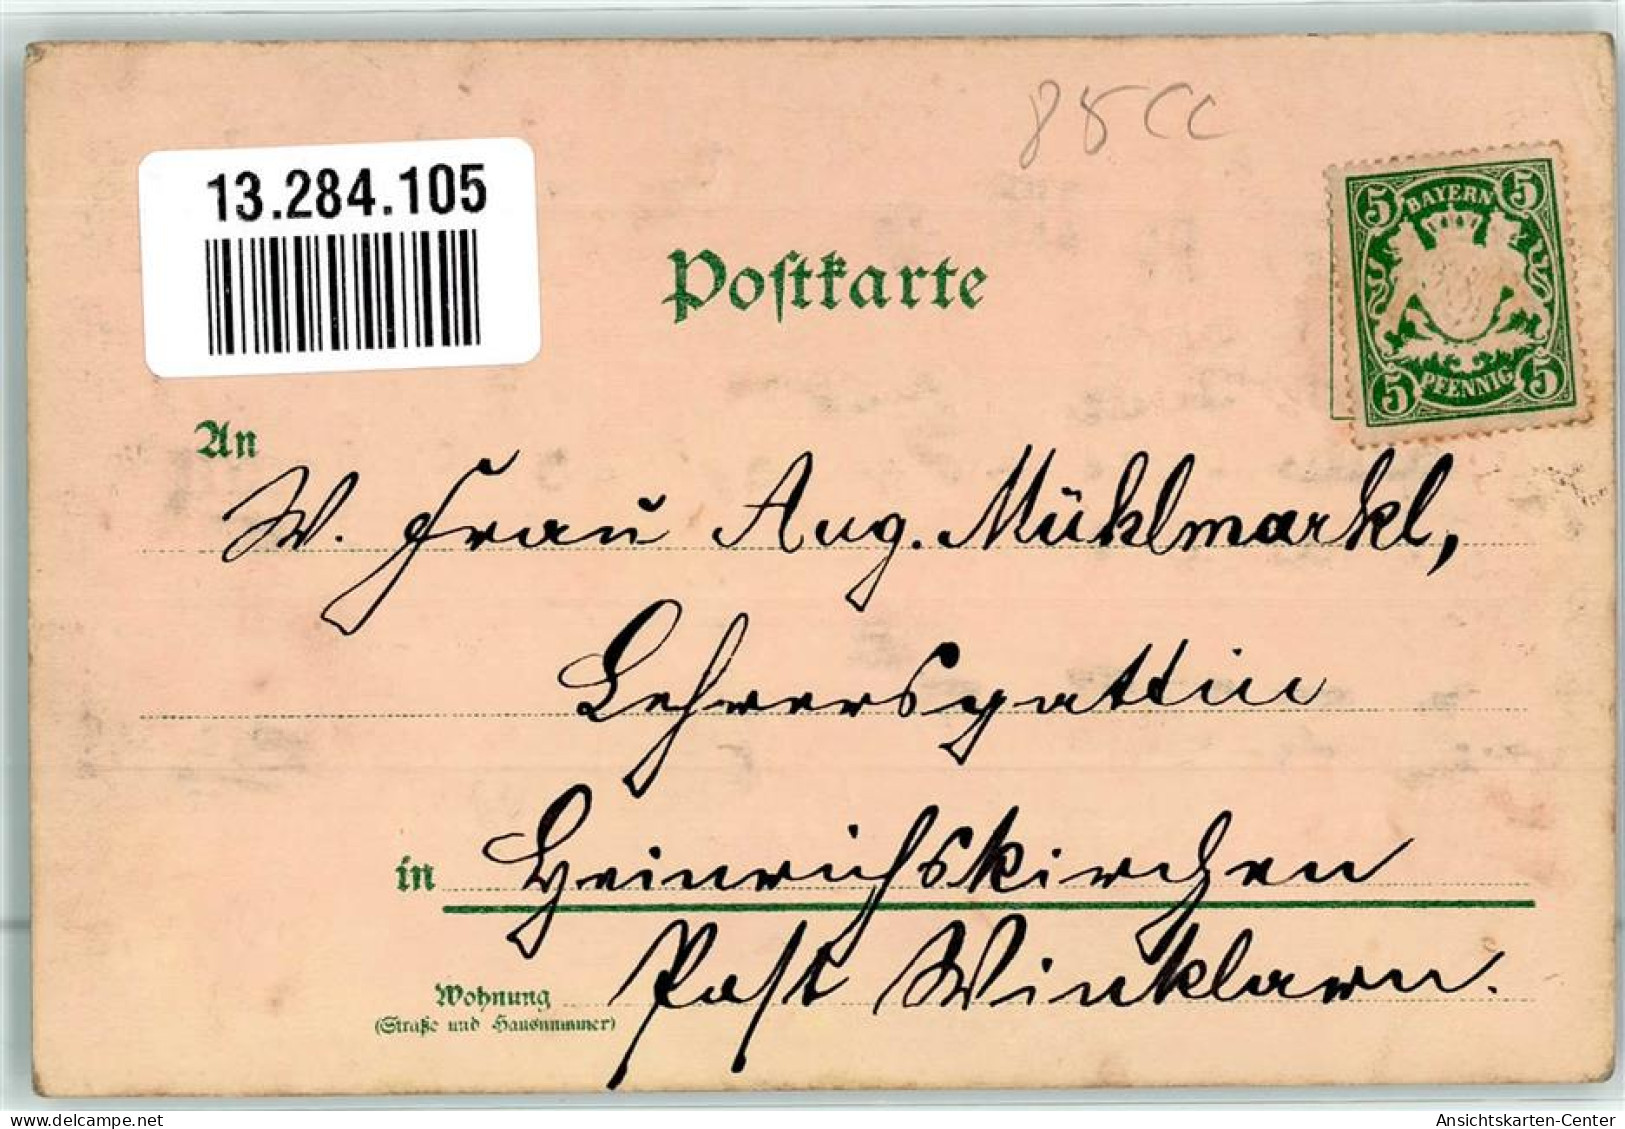 88 CC
13.284.105
BAYERN
5 5
5 5
PFENNIG
Postkarte
An
W. Frau Aug. Mühlmarkl,
Lehrersgattin
in Heinrichskirchen
Post Winklarn.
Wohnung
(Straße und Hausnummer)
delcampe.net
Ansichtskarten-Center